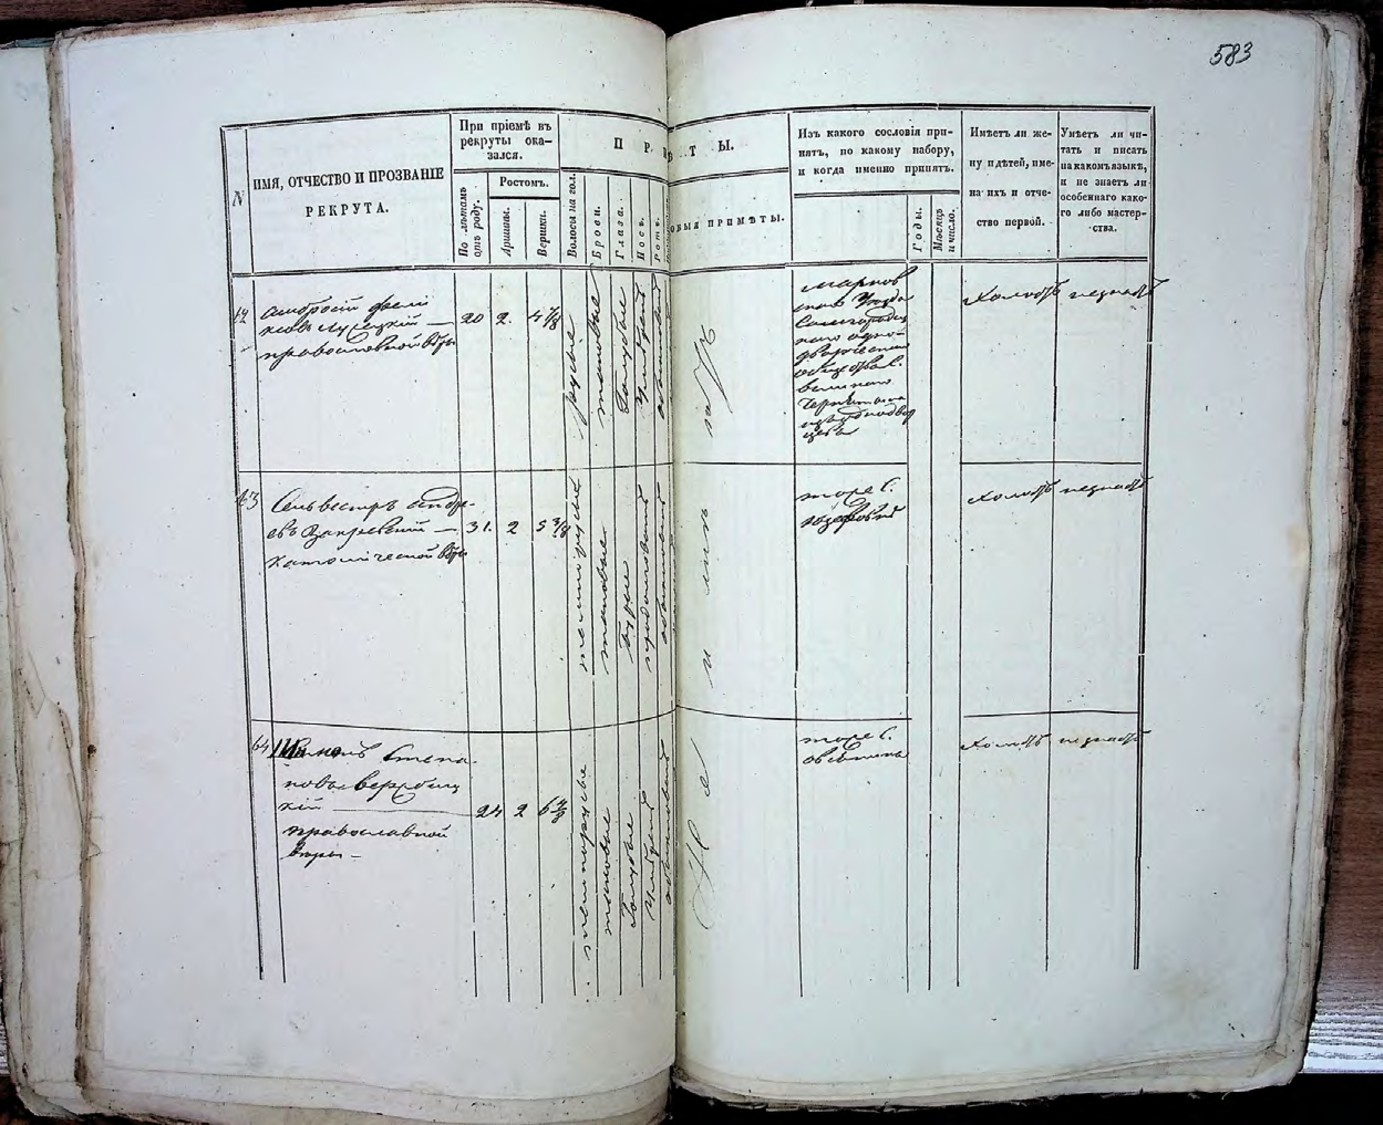 583
N
ИМЯ, ОТЧЕСТВО И ПРОЗВАНІЕ
РЕКРУТА.
При пріемѣ въ
рекруты ока-
зался.
По лѣтамъ
отъ роду.
Ростомъ.
Аршины.
Вершки.
П Р Т Ы.
Волосы на гол.
Брови.
Глаза.
Носъ.
Ротъ.
ОБЫЯ ПРИМѢТЫ.
Изъ какого сословія при-
нятъ, по какому набору,
и когда именно принятъ.
Годы.
Мѣсяцъ
и число.
Имѣетъ ли же-
ну и дѣтей, име-
на ихъ и отче-
ство первой.
Умѣетъ ли чи-
тать и писать
на какомъ языкѣ,
и не знаетъ ли
особеннаго како-
го либо мастер-
ства.
62
Амбросій
православной вѣры
20
2.
4 7/8
русые
темновые
голубые
умѣренный
обыкновенный
уезда
одно-
дворческаго
общества С.
холостъ
незнаетъ
63
Сильвестръ Андре-
евъ Закревскій —
католической вѣры
31.
2
5 3/8
темнорусые
темновые
бурые
продолговатый
обыкновенный
тоже С.
холостъ
незнаетъ
64
Степа-
новъ Вербиц
кій
православной
вѣры —
24
2
6
темнорусые
темновые
голубые
умѣренный
обыкновенный
тоже С.
холостъ
незнаетъ